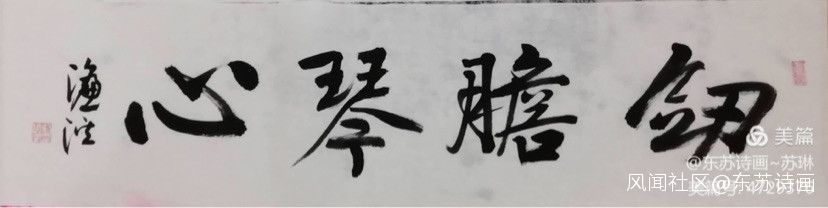 劒膽琴心
美篇
@东苏诗画~苏琳
风闻社区@东苏诗画